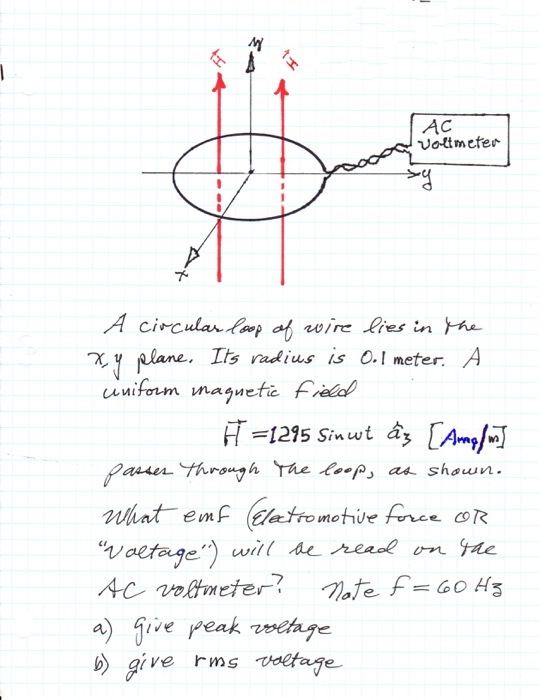 H H
AC
voltmeter
y
x
A circular loop of wire lies in the
x, y plane. Its radius is 0.1 meter. A
uniform magnetic field
H⃗ = 1295 Sin wt â₃ [Amp/m]
passes through the loop, as shown.
What emf (Eletromotive force OR
"voltage") will be read on the
AC voltmeter? Note f = 60 Hz
a) give peak voltage
b) give rms voltage